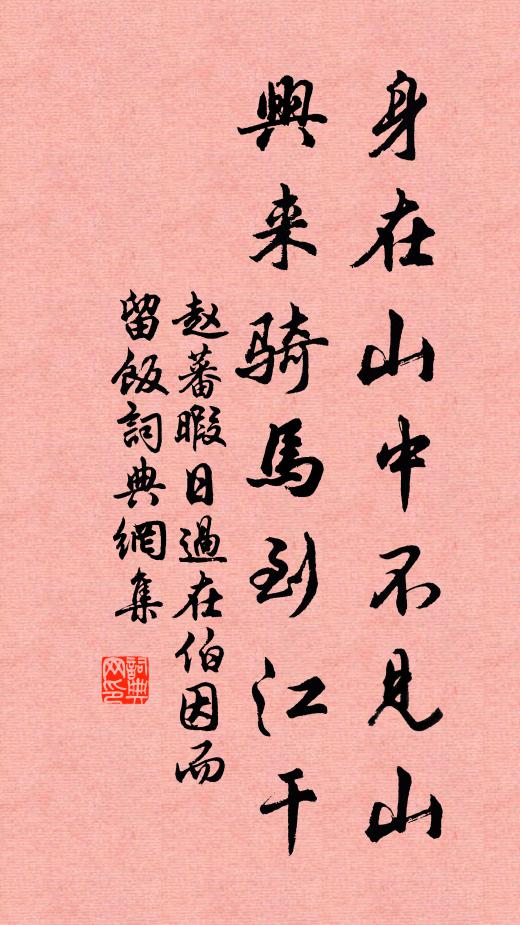 身在山中不见山
興来骑馬到江干
赵蕃暇日過在伯因而
留飯詞典網集
詞典網印